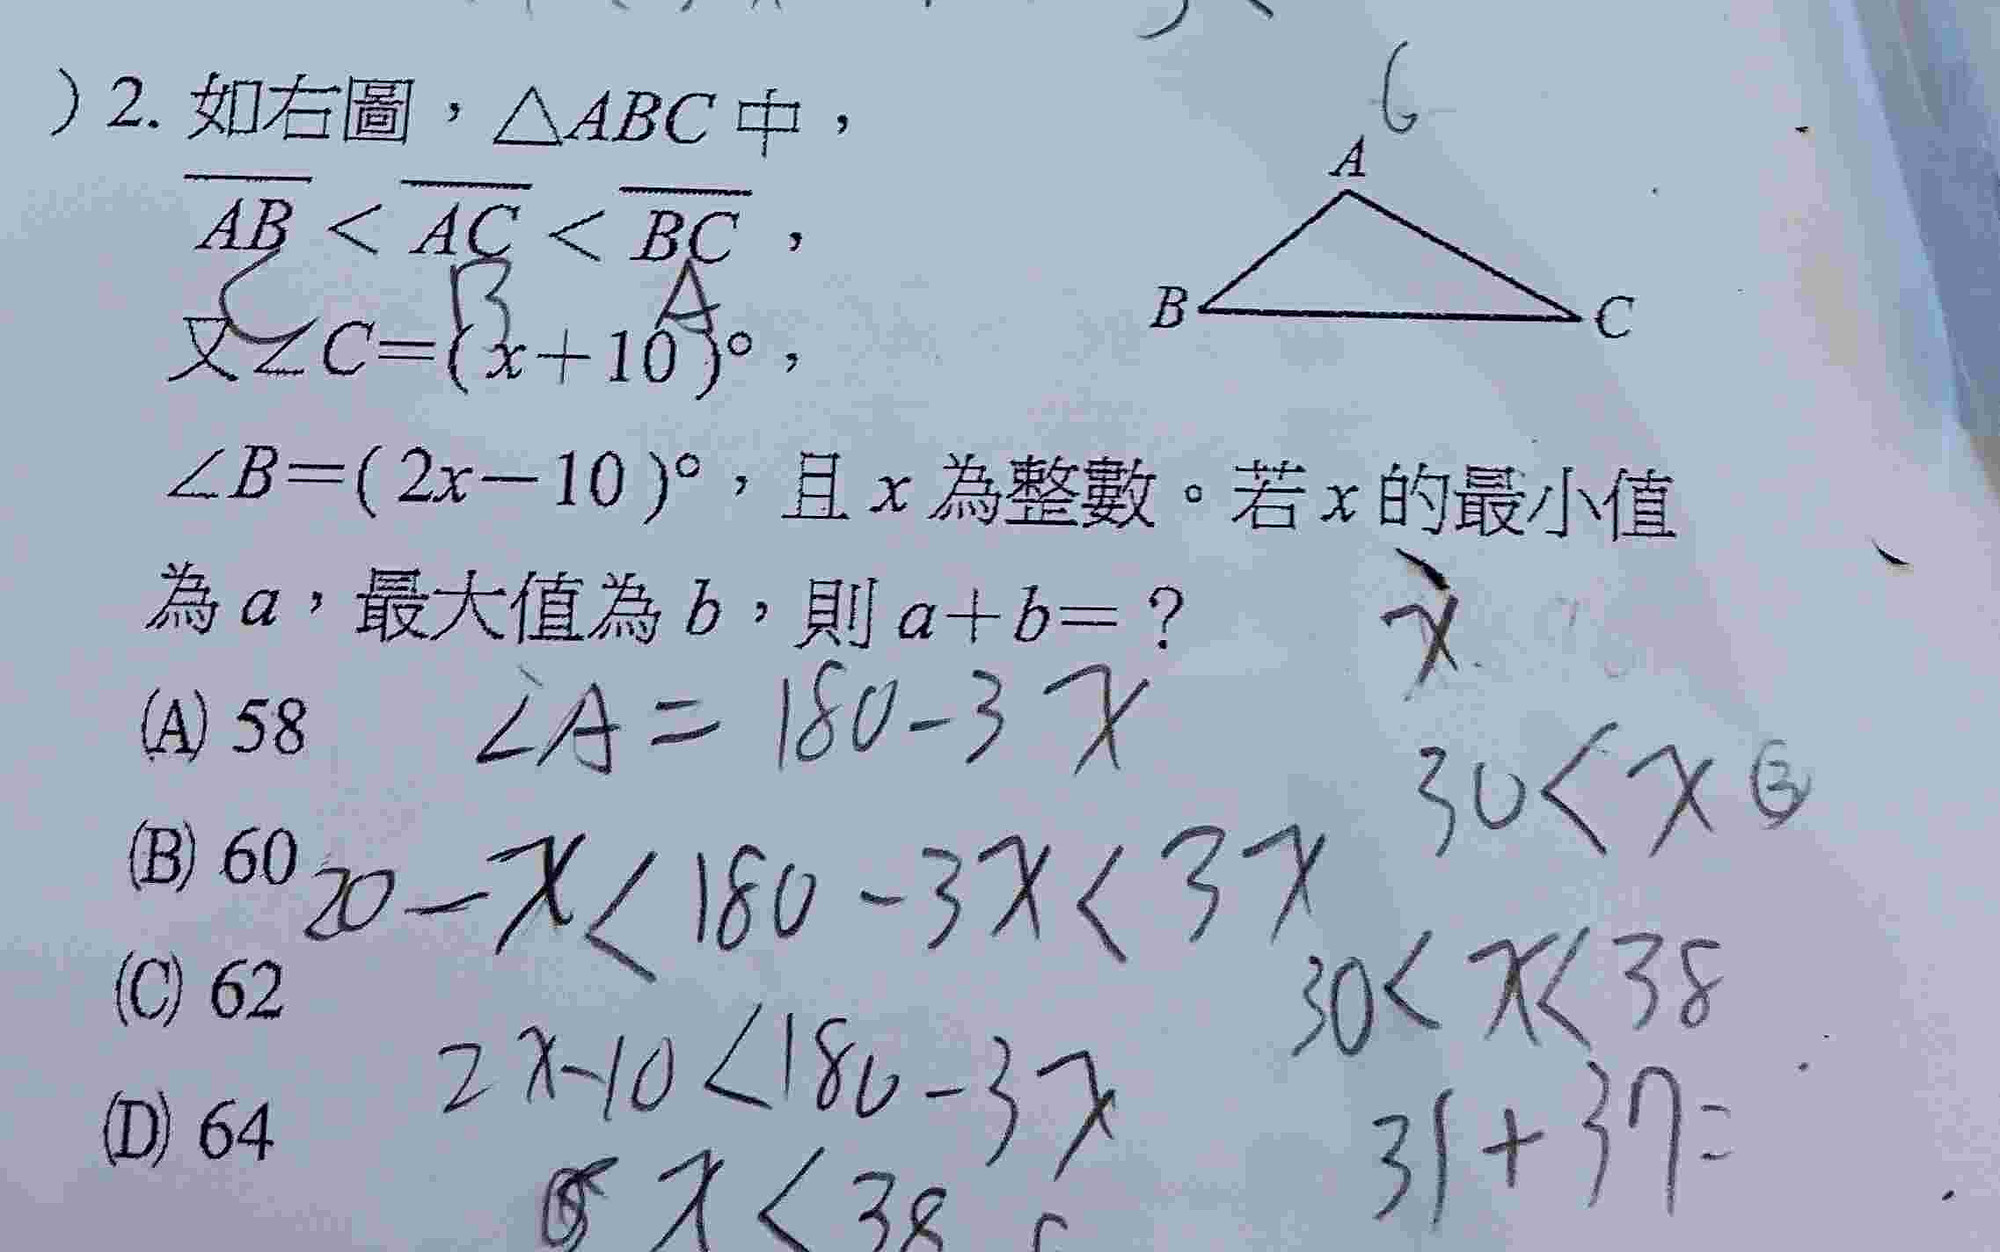 )2. 如右圖，△ABC中，
AB < AC < BC，
C B A
又∠C=(x+10)°，
∠B=(2x-10)°，且x為整數。若x的最小值
為a，最大值為b，則a+b=？
(A) 58
(B) 60
(C) 62
(D) 64
A
B
C
∠A = 180-3x
20-x<180-3x<3x
2x-10<180-3x
x<38
x
30<x
30<x<38
31+37=